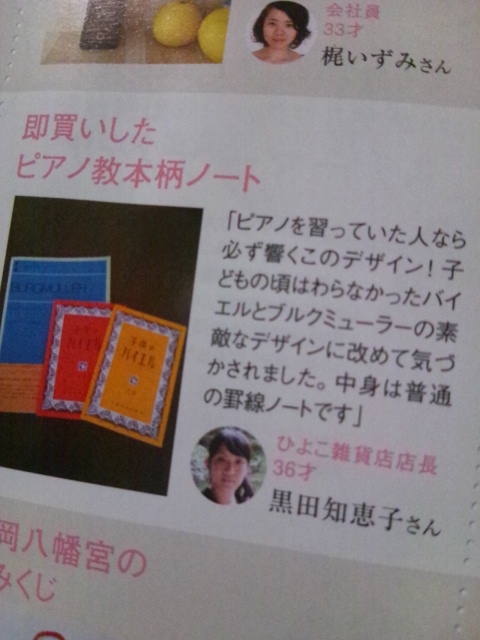 会社員
33才
梶いずみさん
即買いした
ピアノ教本柄ノート
BURGMÜLLER
子供の
バイエル
「ピアノを習っていた人なら
必ず響くこのデザイン！子
どもの頃はわらなかったバイ
エルとブルクミューラーの素
敵なデザインに改めて気づ
かされました。中身は普通
の罫線ノートです」
ひよこ雑貨店店長
36才
黒田知恵子さん
岡八幡宮の
みくじ